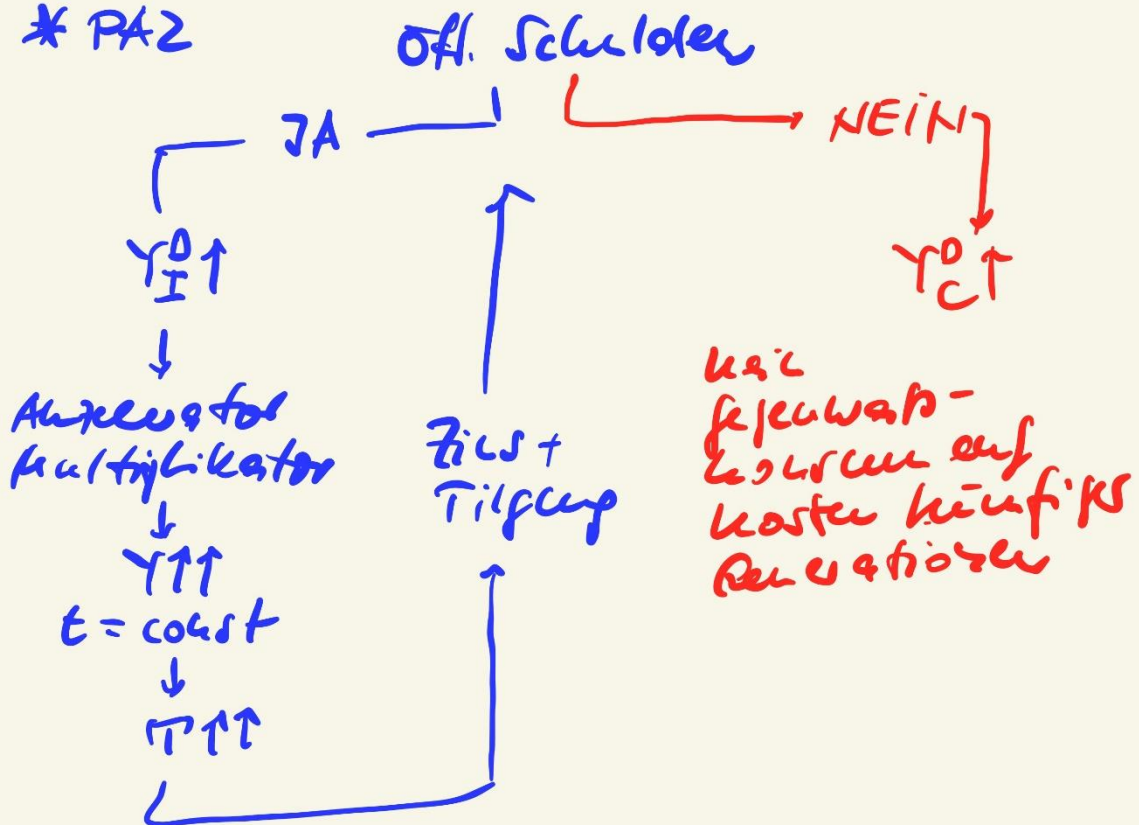 * PA2
Öff. Schulden
JA
NEIN
Y^D_I ↑
Y^D_C ↑
Akzelerator
Multiplikator
Y↑↑
t = const
T↑↑
Zins +
Tilgung
kein
Gegenwarts-
konsum auf
Kosten künftiger
Generationen